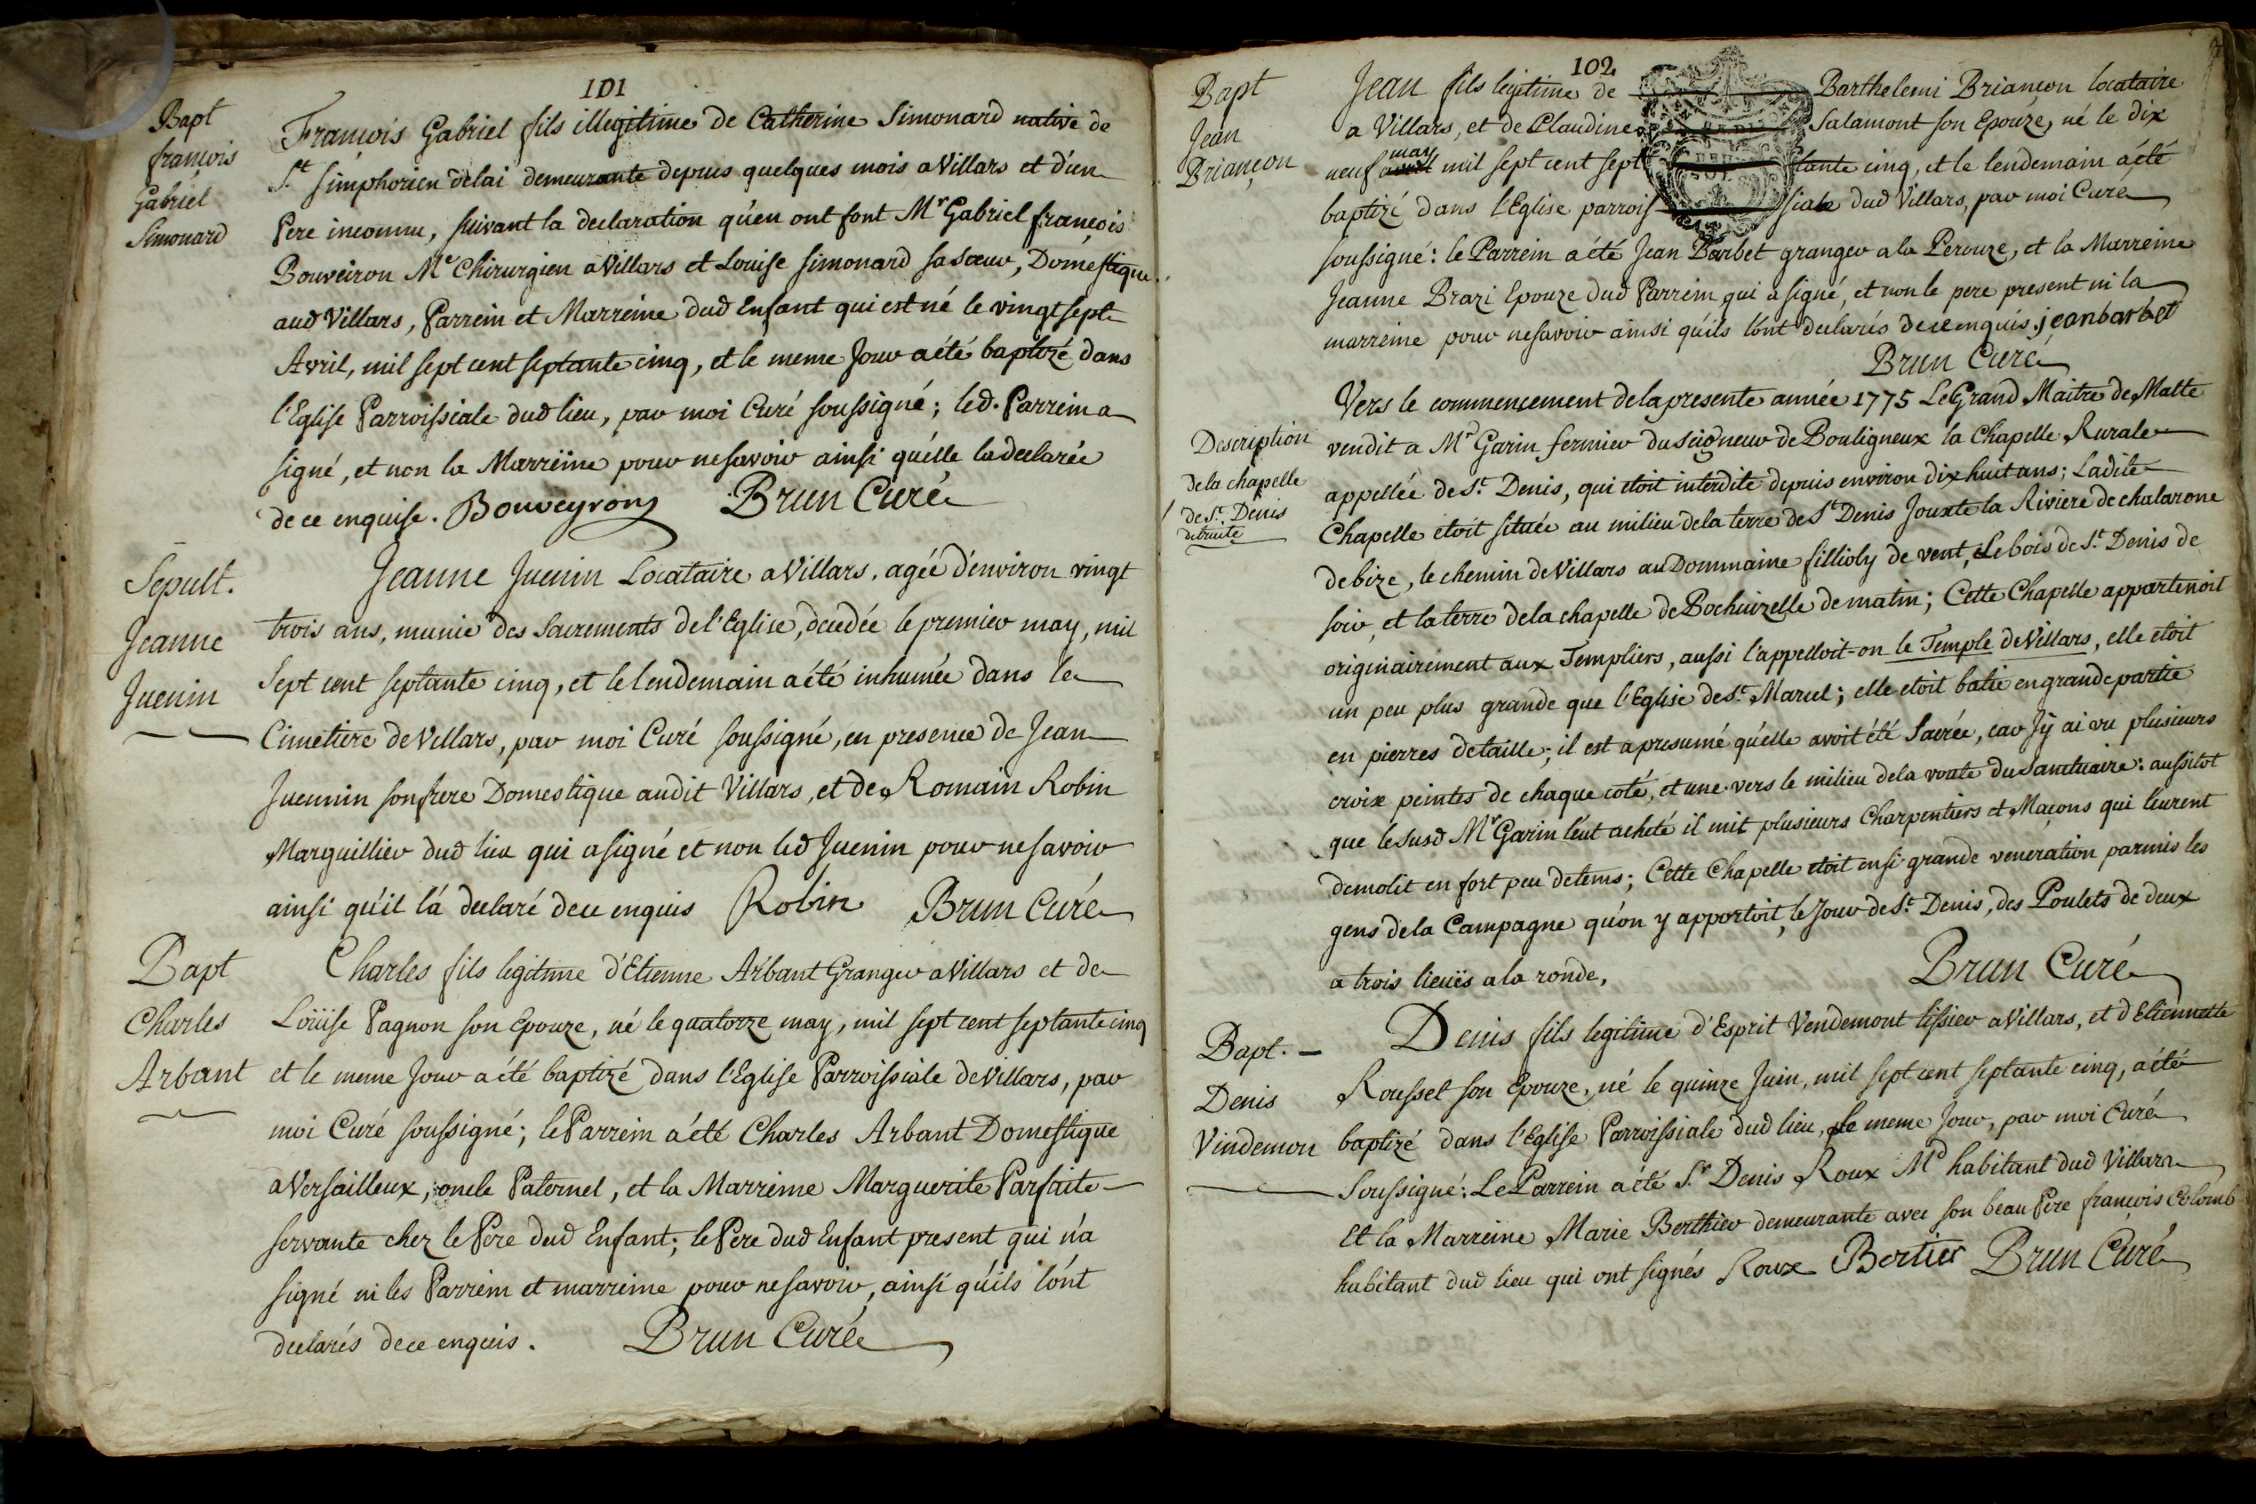 101
Bapt
françois
Gabriel
Simonard
François Gabriel fils illegitime de Catherine Simonard native de
St. simphorien delai demeurante depuis quelques mois a Villars et d'un
Pere inconnu, suivant la declaration qu'en ont font Mr Gabriel françois
Bouveiron Me Chirurgien a Villars et Louise simonard sa sœur, Domestique
aud Villars, Parrein et Marreine dud Enfant qui est né le vingt sept
Avril, mil sept cent septante cinq, et le meme Jour a été baptizé dans
l'Eglise Parroissiale dud lieu, par moi Curé soussigné; led. Parrein a
signé, et non la Marreine pour ne savoir ainsi qu'elle la declarée
de ce enquise. Bouveyron Brun Curé
Sepult.
Jeanne
Juenin
Jeanne Juenin Locataire a Villars, agée d'environ vingt
trois ans, munie des sacrements de l'Eglise, decedée le premier may, mil
sept cent septante cinq, et le lendemain a été inhumée dans le
Cimetiere de Villars, par moi Curé soussigné, en presence de Jean
Juennin son frere Domestique audit Villars, et de Romain Robin
Marguillier dud lieu qui a signé et non led Juenin pour ne savoir
ainsi qu'il l'a declaré de ce enquis Robin Brun Curé
Bapt
Charles
Arbant
Charles fils legitime d'Etienne Arbant Granger a Villars et de
Loüise Pagnon son Epouze, né le quatorze may, mil sept cent septante cinq
et le meme Jour a été baptizé dans l'Eglise Parroissiale de Villars, par
moi Curé soussigné; le Parrein a été Charles Arbant Domestique
a Versailleux, oncle Paternel, et la Marreine Marguerite Parfaite
servante chez le Pere dud Enfant; le Pere dud Enfant present qui n'a
signé ni les Parrein et marreine pour ne savoir, ainsi qu'ils l'ont
declarés de ce enquis. Brun Curé
102
Bapt
Jean
Briançon
Jean fils legitime de Barthelemi Briançon locataire
a Villars, et de Claudine Salamont son Epouze, né le dix
neuf avril may mil sept cent septante cinq, et le lendemain a été
baptizé dans l'Eglise parroissiale dud Villars, par moi Curé
soussigné: le Parrein a été Jean Barbet granger a la Perouze, et la Marreine
Jeanne Brazi Epouze dud Parrein qui a signé, et non le pere present ni la
marreine pour ne savoir ainsi qu'ils l'ont declarés de ce enquis. jean barbet
Brun Curé
Description
de la chapelle
de St. Denis
detruite
Vers le commencement de la presente année 1775 Le Grand Maitre de Malte
vendit a Mr Garin fermier du seigneur de Bouligneux la Chapelle Rurale
appellée de St. Denis, qui etoit interdite depuis environ dix huit ans; Ladite
Chapelle etoit située au milieu de la terre de St Denis Jouxte la Riviere de chalarone
de bize, le chemin de Villars au Dommaine fillioly de vent, Le bois de St. Denis de
soir, et la terre de la chapelle de Bochuizelle de matin; Cette Chapelle appartenoit
originairement aux Templiers, aussi l'appelloit-on le Temple de Villars, elle etoit
un peu plus grande que l'Eglise de St. Marcel; elle etoit batie en grande partie
en pierres de taille; il est a presumé qu'elle avoit été Sacrée, car J'y ai vu plusieurs
croix peintes de chaque coté, et une vers le milieu de la voute du Sanctuaire: aussitot
que le susd Mr Garin l'eut acheté il mit plusieurs Charpentiers et Maçons qui l'eurent
demolit en fort peu de tems; Cette Chapelle etoit en si grande veneration parmis les
gens de la Campagne qu'on y apportoit, le Jour de St. Denis, des Poulets de deux
a trois lieuës a la ronde. Brun Curé
Bapt.
Denis
Vindemon
Denis fils legitime d'Esprit Vendemont tissier a Villars, et d'Etiennette
Rousset son Epouze, né le quinze Juin, mil sept cent septante cinq, a été
baptizé dans l'Eglise Parroissiale dud lieu, le meme Jour, par moi Curé
soussigné: Le Parrein a été Sr. Denis Roux Md habitant dud Villars
Et la Marreine Marie Berthier demeurante avec son beau Pere françois Colomb
habitant dud lieu qui ont signés Roux Bertier Brun Curé